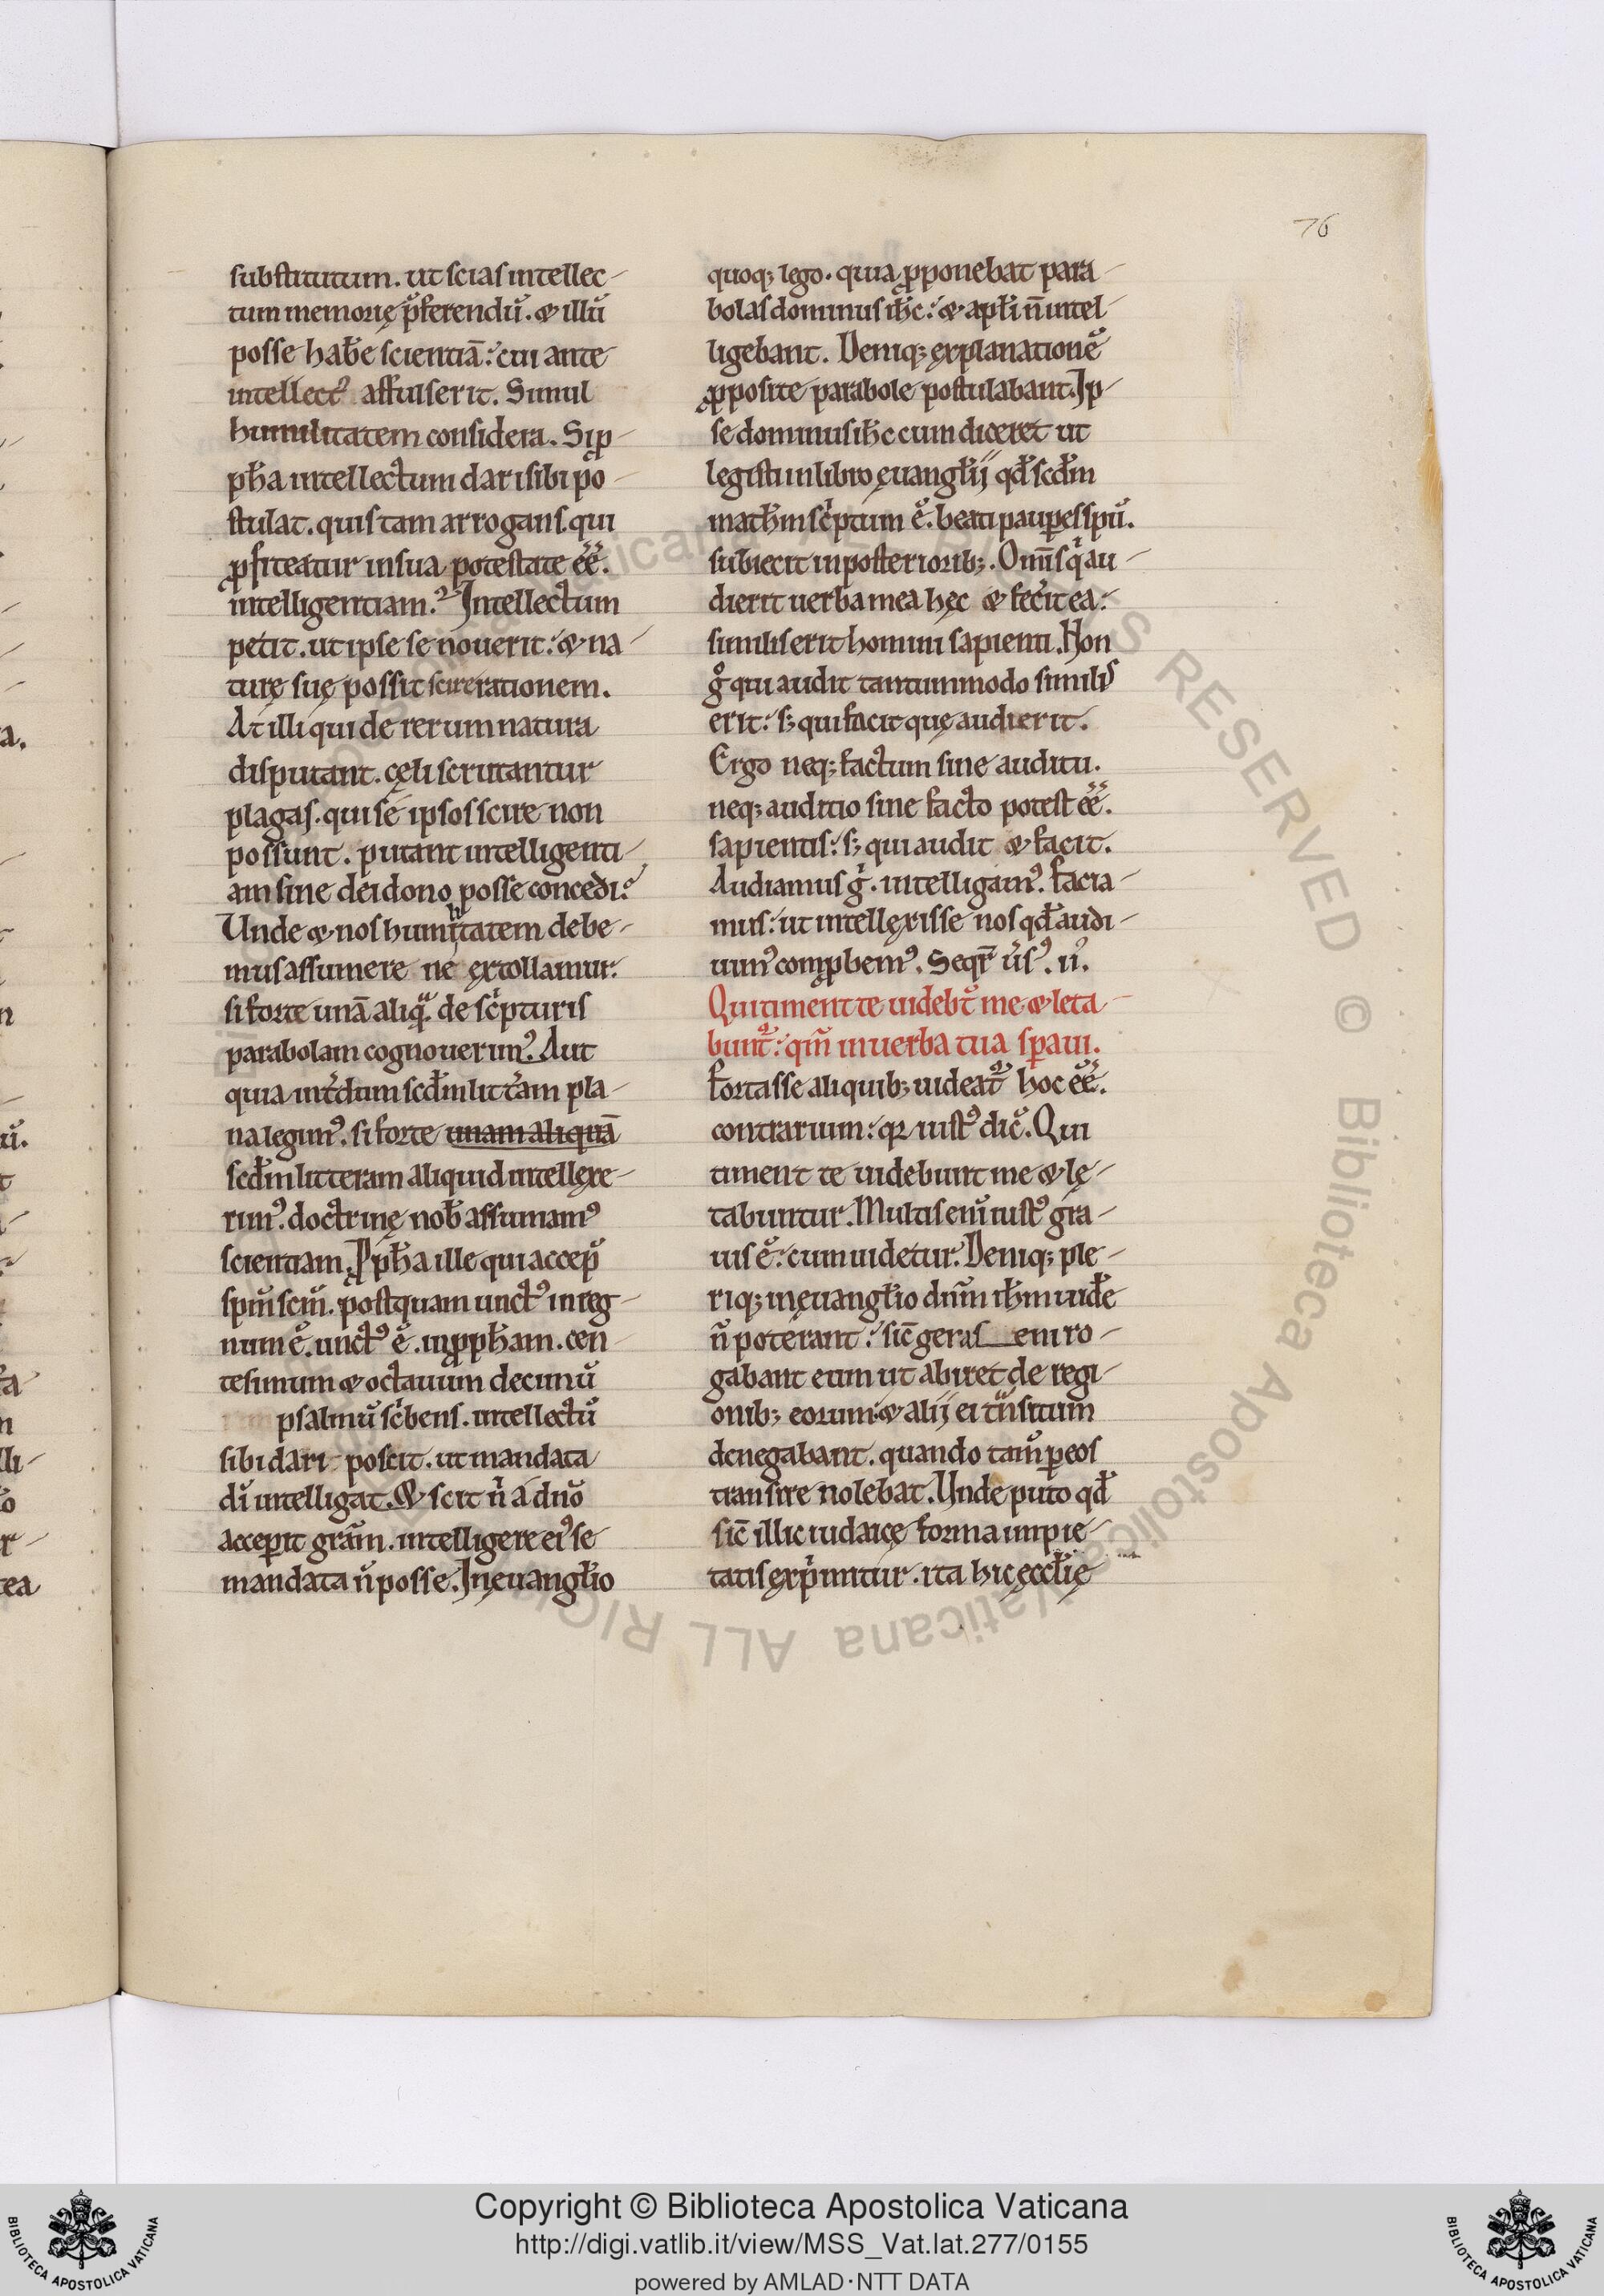 76
substitutum. ut scias intellec-
tum memorię p̄ferendū. & illū
posse hab̄e scientiā: cui ante
intellectꝰ affulserit. Simul
humilitatem considera. Si ꝓ-
ph̄a intellectum dari sibi po-
stulat. quis tam arrogans. qui
ꝓfiteatur in sua potestate ēē.
intelligentiam? Intellectum
petit. ut ipse se nouerit: & na-
turę suę possit scire rationem.
At illi qui de rerum natura
disputant. cęli scrutantur
plagas. qui se ipsos scire non
possunt. putant intelligenti-
am sine dei dono posse concedi?
Unde & nos humilitatem debe-
mus assumere ne extollamur:
si forte unā aliqͣ de sc̄pturis
parabolam cognouerimꝰ. Aut
quia int̄dum scd̄m litt̄am pla-
na legimꝰ. si forte unam aliquā
scd̄m litteram aliquid intellexe-
rimꝰ. doctrinę nob̄ assumamꝰ
scientiam. Ꝓph̄a ille qui accep̄
sp̄m sc̄m. postquam unctꝰ in reg-
num ē. unctꝰ ē. in ꝓpham. cen-
tesimum & octauum decimū
psalmū sc̄bens. intellectū
sibi dari poscit. ut mandata
dī intelligat. & scit nⁱ a dn̄o
acceꝑit gr̄am. intelligere eiꝰ se
mandata n̄ posse. In euangl̄io
quoq; lego. quia ꝓponebat para-
bolas dominus ih̄c: & apl̄i n̄ intel-
ligebant. Deniq; explanationē
ꝓposite parabole postulabant. Ip-
se dominus ih̄c cum diceret ut
legisti in libro euangl̄ij qd̄ scd̄m
math̄m sc̄ptum ē. beati pauꝑes spū.
subiecit in posteriorib;. Om̄s qⁱ au-
dierit uerba mea hęc & fec̄it ea:
similis erit homini sapienti. Non
gͦ qui audit tantummodo similis
erit: s; qui facit quę audierit.
Ergo neq; factum sine auditu.
neq; auditio sine facto potest ēē.
sapientis: s; qui audit & facit.
Audiamus gⁱ. intelligamꝰ. facia-
mus: ut intellexisse nos qd̄ audi-
uimꝰ comꝓbemꝰ. Seqr̄ ūsꝰ. ii.
Qui timent te uidebt̄ me & leta-
bunt̄: qm̄ in uerba tua sꝑaui.
Fortasse aliquib; uideat̄ hoc ēē.
contrarium: qꝛ iustꝰ dic̄. Qui
timent te uidebunt me & lę-
tabuntur. Multis enī iustꝰ gra-
uis ē: cum uidetur. Deniq; ple-
riq; in euangl̄io dn̄m ih̄m uid̄e
n̄ poterant: sic̄ geras eni ro-
gabant eum ut abiret de regi-
onib; eorum: & alij ei tͣnsitum
denegabant. quando tam̄ ꝑ eos
transire nolebat. Unde puto qd̄
sic̄ illic iudaicę forma impie-
tatis exp̄mitur. ita hic eccl̄ię
Copyright © Biblioteca Apostolica Vaticana
http://digi.vatlib.it/view/MSS_Vat.lat.277/0155
powered by AMLAD·NTT DATA
BIBLIOTECA APOSTOLICA VATICANA
BIBLIOTECA APOSTOLICA VATICANA